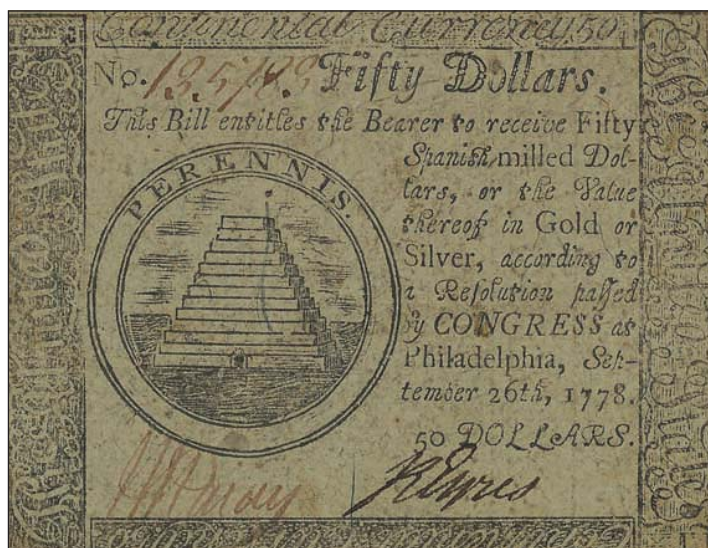 Continental Currency. 50
No. Fifty Dollars.
This Bill entitles the Bearer to receive Fifty
Spanish milled Dol-
lars, or the Value
thereof in Gold or
Silver, according to
a Resolution passed
by CONGRESS at
Philadelphia, Sep-
tember 26th, 1778.
50 DOLLARS.
PERENNIS.